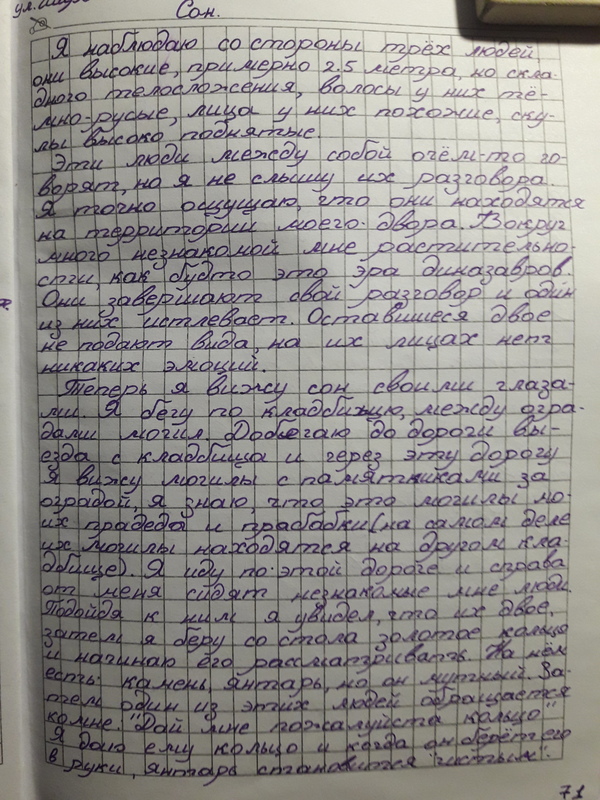 Сон.
Я наблюдаю со стороны трёх людей
они высокие, примерно 2.5 метра, но скла-
дного телосложения, волосы у них тё-
мно-русые, лица у них похожие, ску-
лы высоко поднятые.
Эти люди между собой очём-то го-
ворят, но я не слышу их разговора.
Я точно ощущаю, что они находятся
на территории моего двора. Вокруг
много незнакомой мне растительно-
сти, как будто это эра диназавров.
Они завершают свой разговор и один
из них истлевает. Оставшиеся двое
не подают вида, на их лицах нет
никаких эмоций.
Теперь я вижу сон своими глаза-
ми. Я бегу по кладбищю, между огра-
дами могил. Добегаю до дороги вы-
езда с кладбища и через эту дорогу
я вижу могилы с памятниками за
оградой, я знаю, что это могилы мо-
их прадеда и прабабки (на самом деле
их могилы находятся на другом кла-
дбище). Я иду по этой дороге и справа
от меня сидят незнакомые мне люди.
Подойдя к ним я увидел, что их двое,
затем я беру со стола золотое кольцо
и начинаю его рассматривать. На нём
есть камень, янтарь, но он мутный. За-
тем один из этих людей обращается
комне. "Дай мне пожалуйста кольцо"
Я даю ему кольцо и когда он берёт его
в руки, янтарь становится "чистым".
71